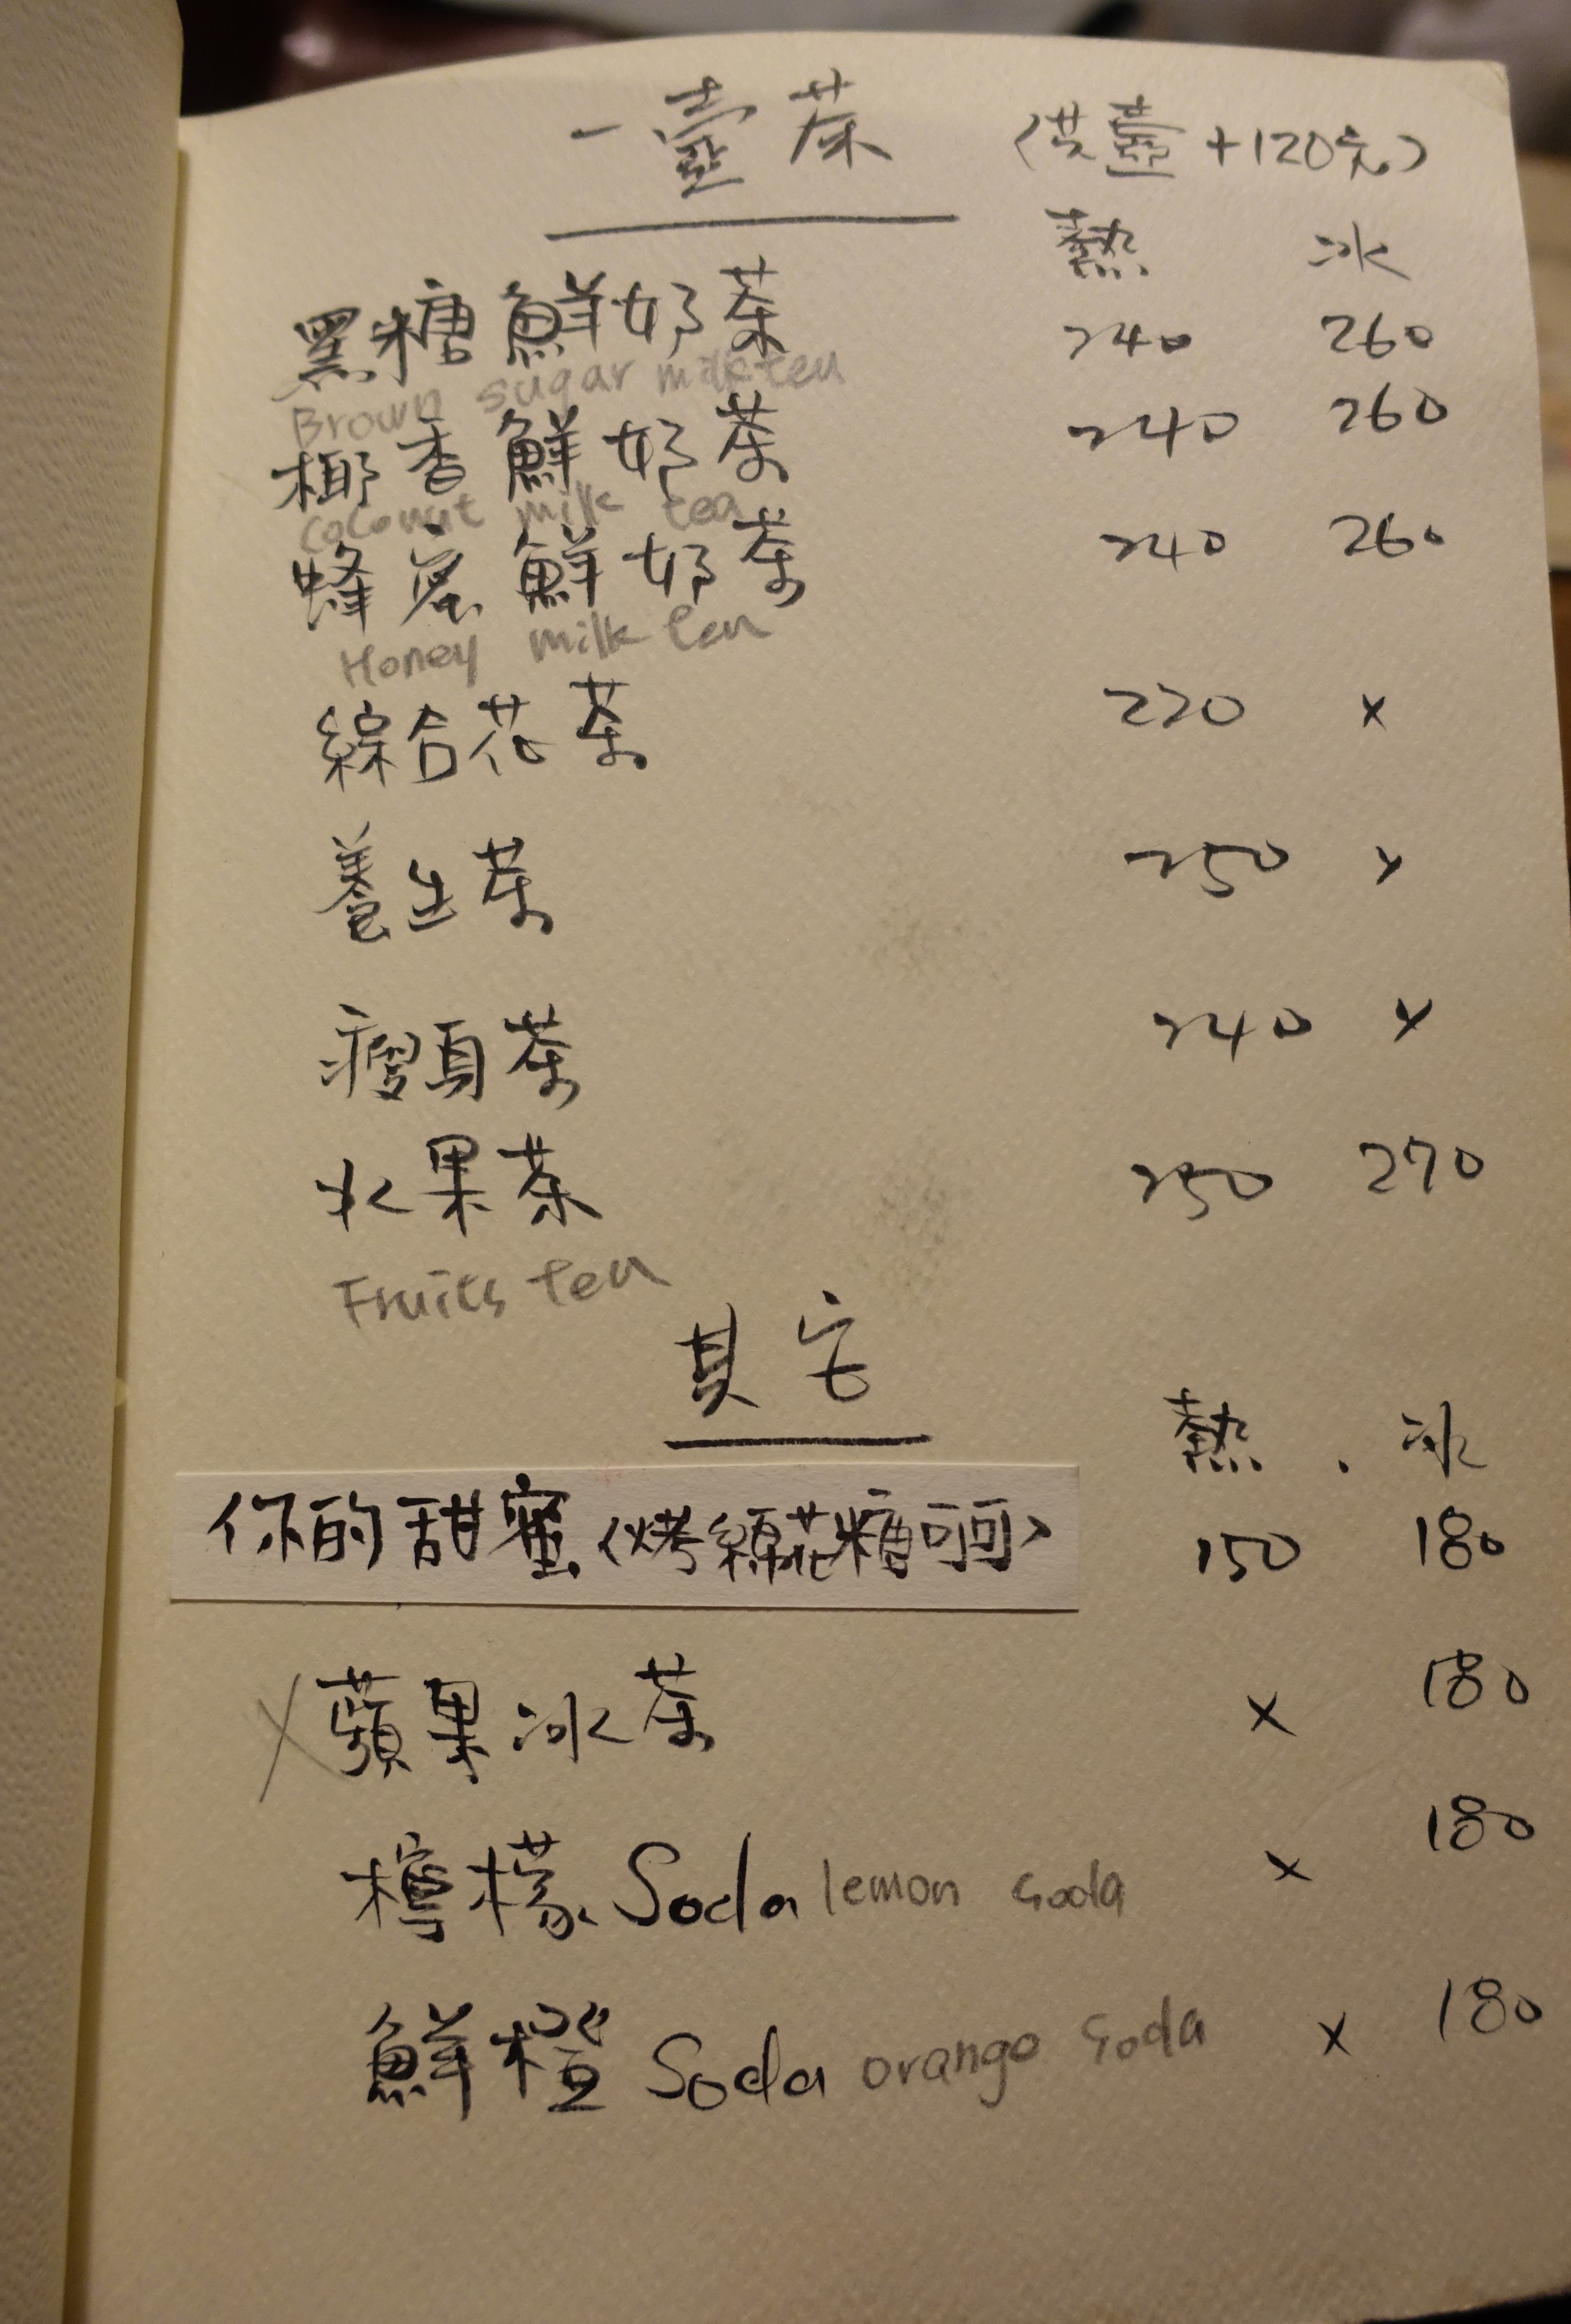 一壺茶 (共壺+120元)
熱 冰
黑糖鮮奶茶 240 260
Brown sugar milk tea
椰香鮮奶茶 240 260
Coconut milk tea
蜂蜜鮮奶茶 240 260
Honey milk tea
綜合花茶 220 x
養生茶 250 x
瘦身茶 240 x
水果茶 250 270
Fruits tea
其它
熱 . 冰
你的甜蜜(烤綿花糖可可) 150 180
X 蘋果冰茶 x 180
檸檬 Soda lemon soda x 180
鮮橙 Soda orange soda x 180